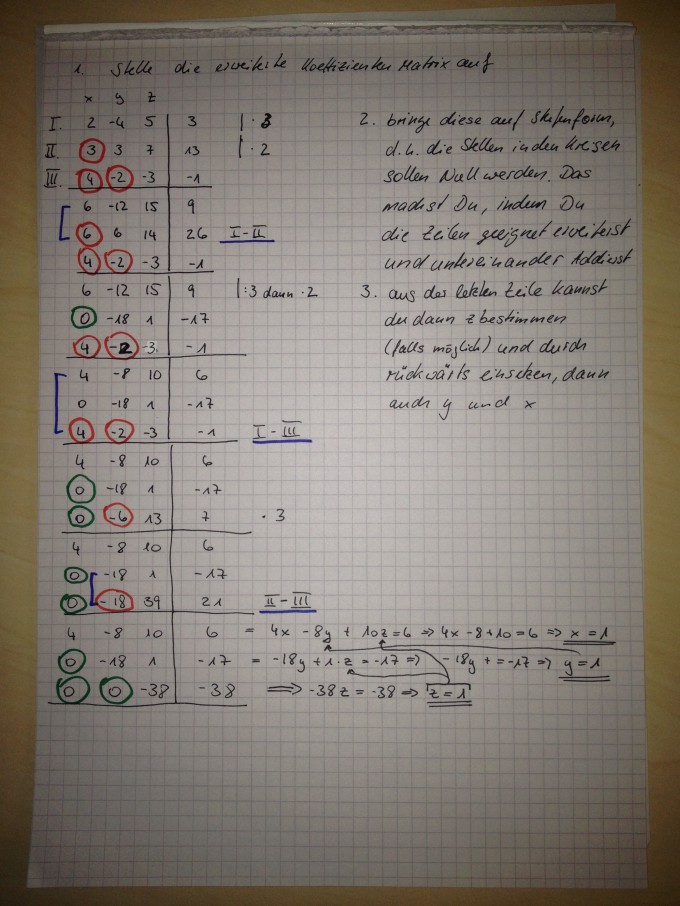 1. Stelle die erweiterte Koeffizienten Matrix auf
x y z
I. 2 -4 5 | 3 | · 3
II. 3 3 7 | 13 | · 2
III. 4 -2 -3 | -1
6 -12 15 | 9
6 6 14 | 26 I - II
4 -2 -3 | -1
6 -12 15 | 9 | :3 dann · 2
0 -18 1 | -17
4 -2 -3 | -1
4 -8 10 | 6
0 -18 1 | -17
4 -2 -3 | -1 I - III
4 -8 10 | 6
0 -18 1 | -17
0 -6 13 | 7 · 3
4 -8 10 | 6
0 -18 1 | -17
0 -18 39 | 21 II - III
4 -8 10 | 6 = 4x - 8y + 10z = 6 ⇒ 4x - 8 + 10 = 6 ⇒ x = 1
0 -18 1 | -17 = -18y + 1 · z = -17 ⇒ -18y + = -17 ⇒ y = 1
0 0 -38 | -38 ⇒ -38z = -38 ⇒ z = 1
2. bringe diese auf Stufenform,
d.h. die Stellen in den Kreisen
sollen Null werden. Das
machst Du, indem Du
die Zeilen geeignet erweiterst
und untereinander Addierst
3. aus der letzten Zeile kannst
du dann z bestimmen
(falls möglich) und durch
rückwärts einsetzen, dann
auch y und x